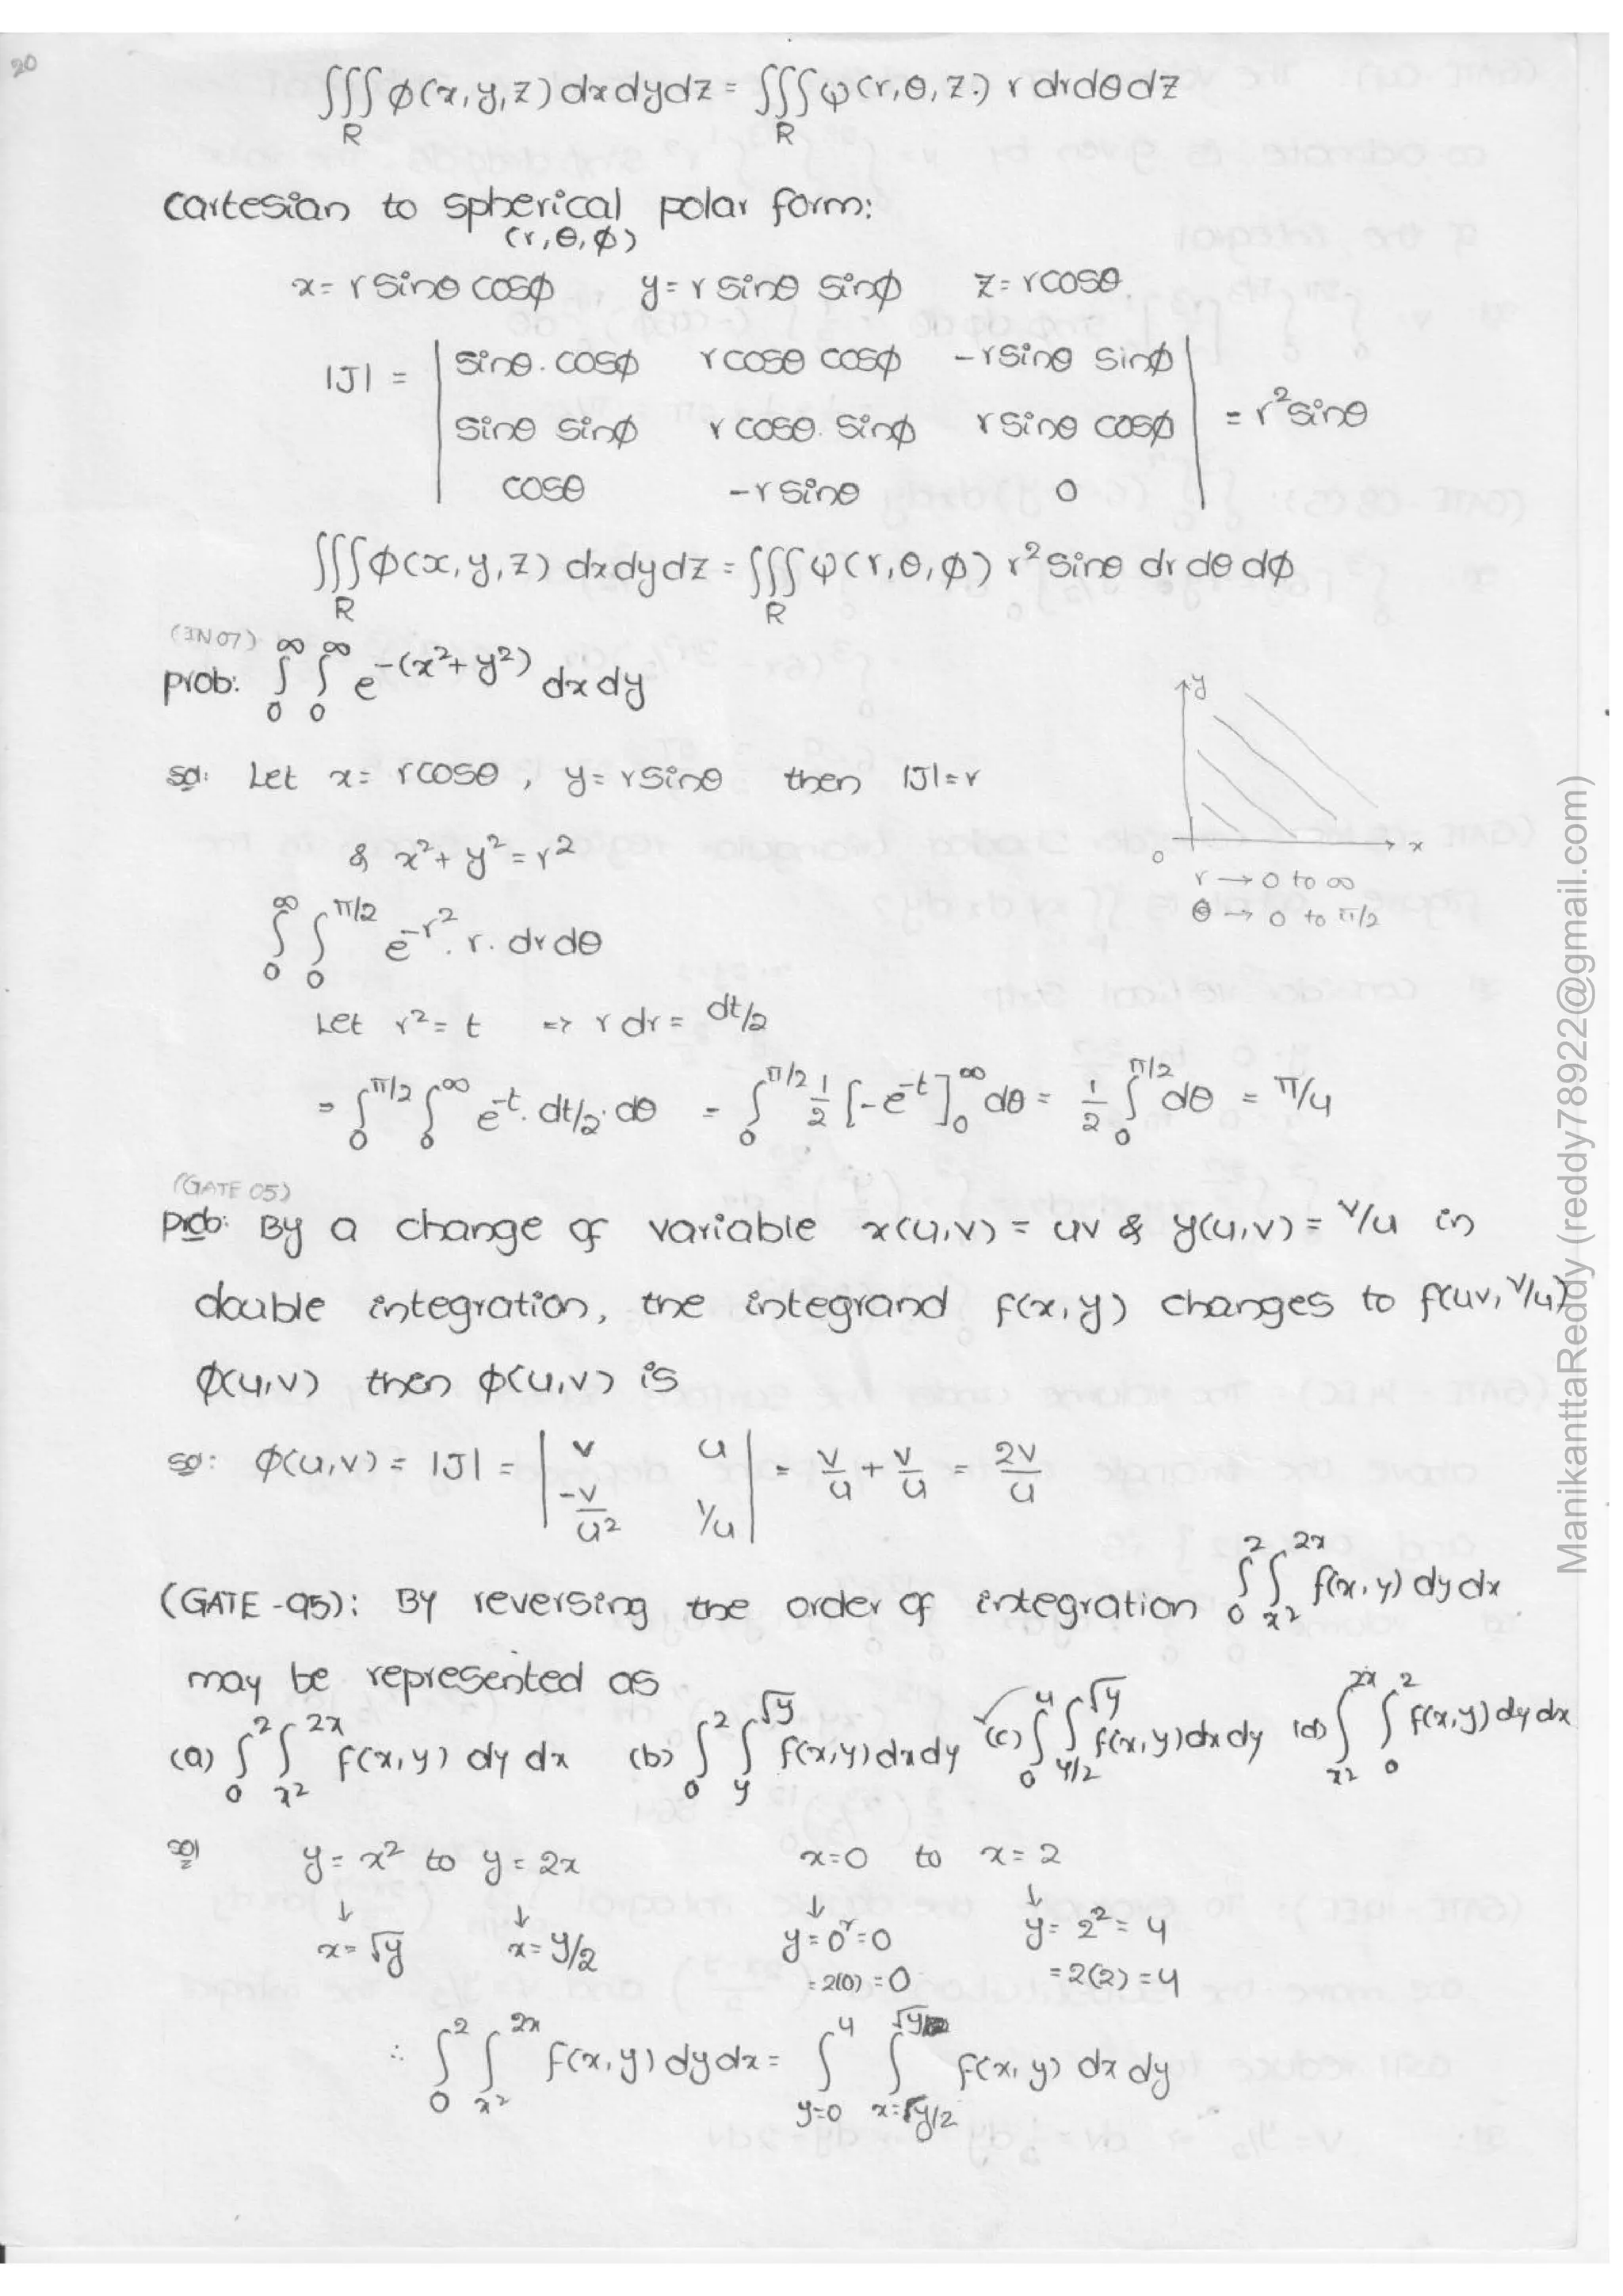 20
∫∫∫_R φ(x,y,z) dxdydz = ∫∫∫_R ψ(r,θ,z.) r drdθdz
Cartesian to spherical polar form:
(r,θ,φ)
x = r sinθ cosφ y = r sinθ sinφ z = r cosθ.
|J| = | sinθ.cosφ r cosθ cosφ -r sinθ sinφ |
| sinθ sinφ r cosθ. sinφ r sinθ cosφ | = r² sinθ
| cosθ -r sinθ 0 |
∫∫∫_R φ(x,y,z) dxdydz = ∫∫∫_R ψ(r,θ,φ) r² sinθ dr dθ dφ
(IN07)
prob: ∫_0^∞ ∫_0^∞ e^-(x²+y²) dxdy
y
sol: Let x = r cosθ, y = r sinθ then |J| = r
0 x
& x²+y² = r²
r → 0 to ∞
θ → 0 to π/2
∫_0^∞ ∫_0^π/2 e^-r². r. drdθ
Let r² = t ⇒ r dr = dt/2
= ∫_0^π/2 ∫_0^∞ e^-t. dt/2. dθ = ∫_0^π/2 1/2 [-e^-t]_0^∞ dθ = 1/2 ∫_0^π/2 dθ = π/4
(GATE 05)
prob: By a change of variable x(u,v) = uv & y(u,v) = v/u in
double integration, the integrand f(x,y) changes to f(uv, v/u)
φ(u,v) then φ(u,v) is
so: φ(u,v) = |J| = | v u |
| -v/u² 1/u | = v/u + v/u = 2v/u
(GATE-95): By reversing the order of integration ∫_0^2 ∫_x²^2x f(x,y) dydx
may be represented as
(a) ∫_0^2 ∫_x²^2x f(x,y) dy dx (b) ∫_0^2 ∫_y^√y f(x,y) dxdy (c) ∫_0^4 ∫_y/2^√y f(x,y) dxdy (d) ∫_x²^2x ∫_0^2 f(x,y) dydx
sol y = x² to y = 2x x=0 to x = 2
↓ ↓ ↓ ↓
x = √y x = y/2 y = 0² = 0 y = 2² = 4
= 2(0) = 0 = 2(2) = 4
∴ ∫_0^2 ∫_x²^2x f(x,y) dydx = ∫_y=0^4 ∫_x=√y/2^√y f(x,y) dx dy
ManikanttaReddy (reddy78922@gmail.com)